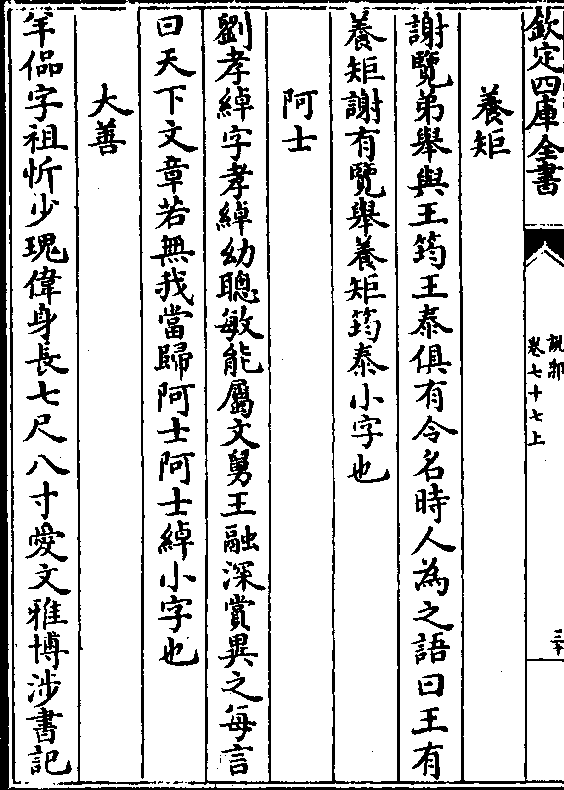 欽定四庫全書
說郛
卷七十七上
三十
養矩
謝覽弟舉與王筠王泰俱有令名時人為之語曰王有
養矩謝有覽舉養矩筠泰小字也
阿士
劉孝綽字孝綽幼聰敏能屬文舅王融深賞異之每言
曰天下文章若無我當歸阿士阿士綽小字也
大善
羊偘字祖忻少瑰偉身長七尺八寸愛文雅博涉書記